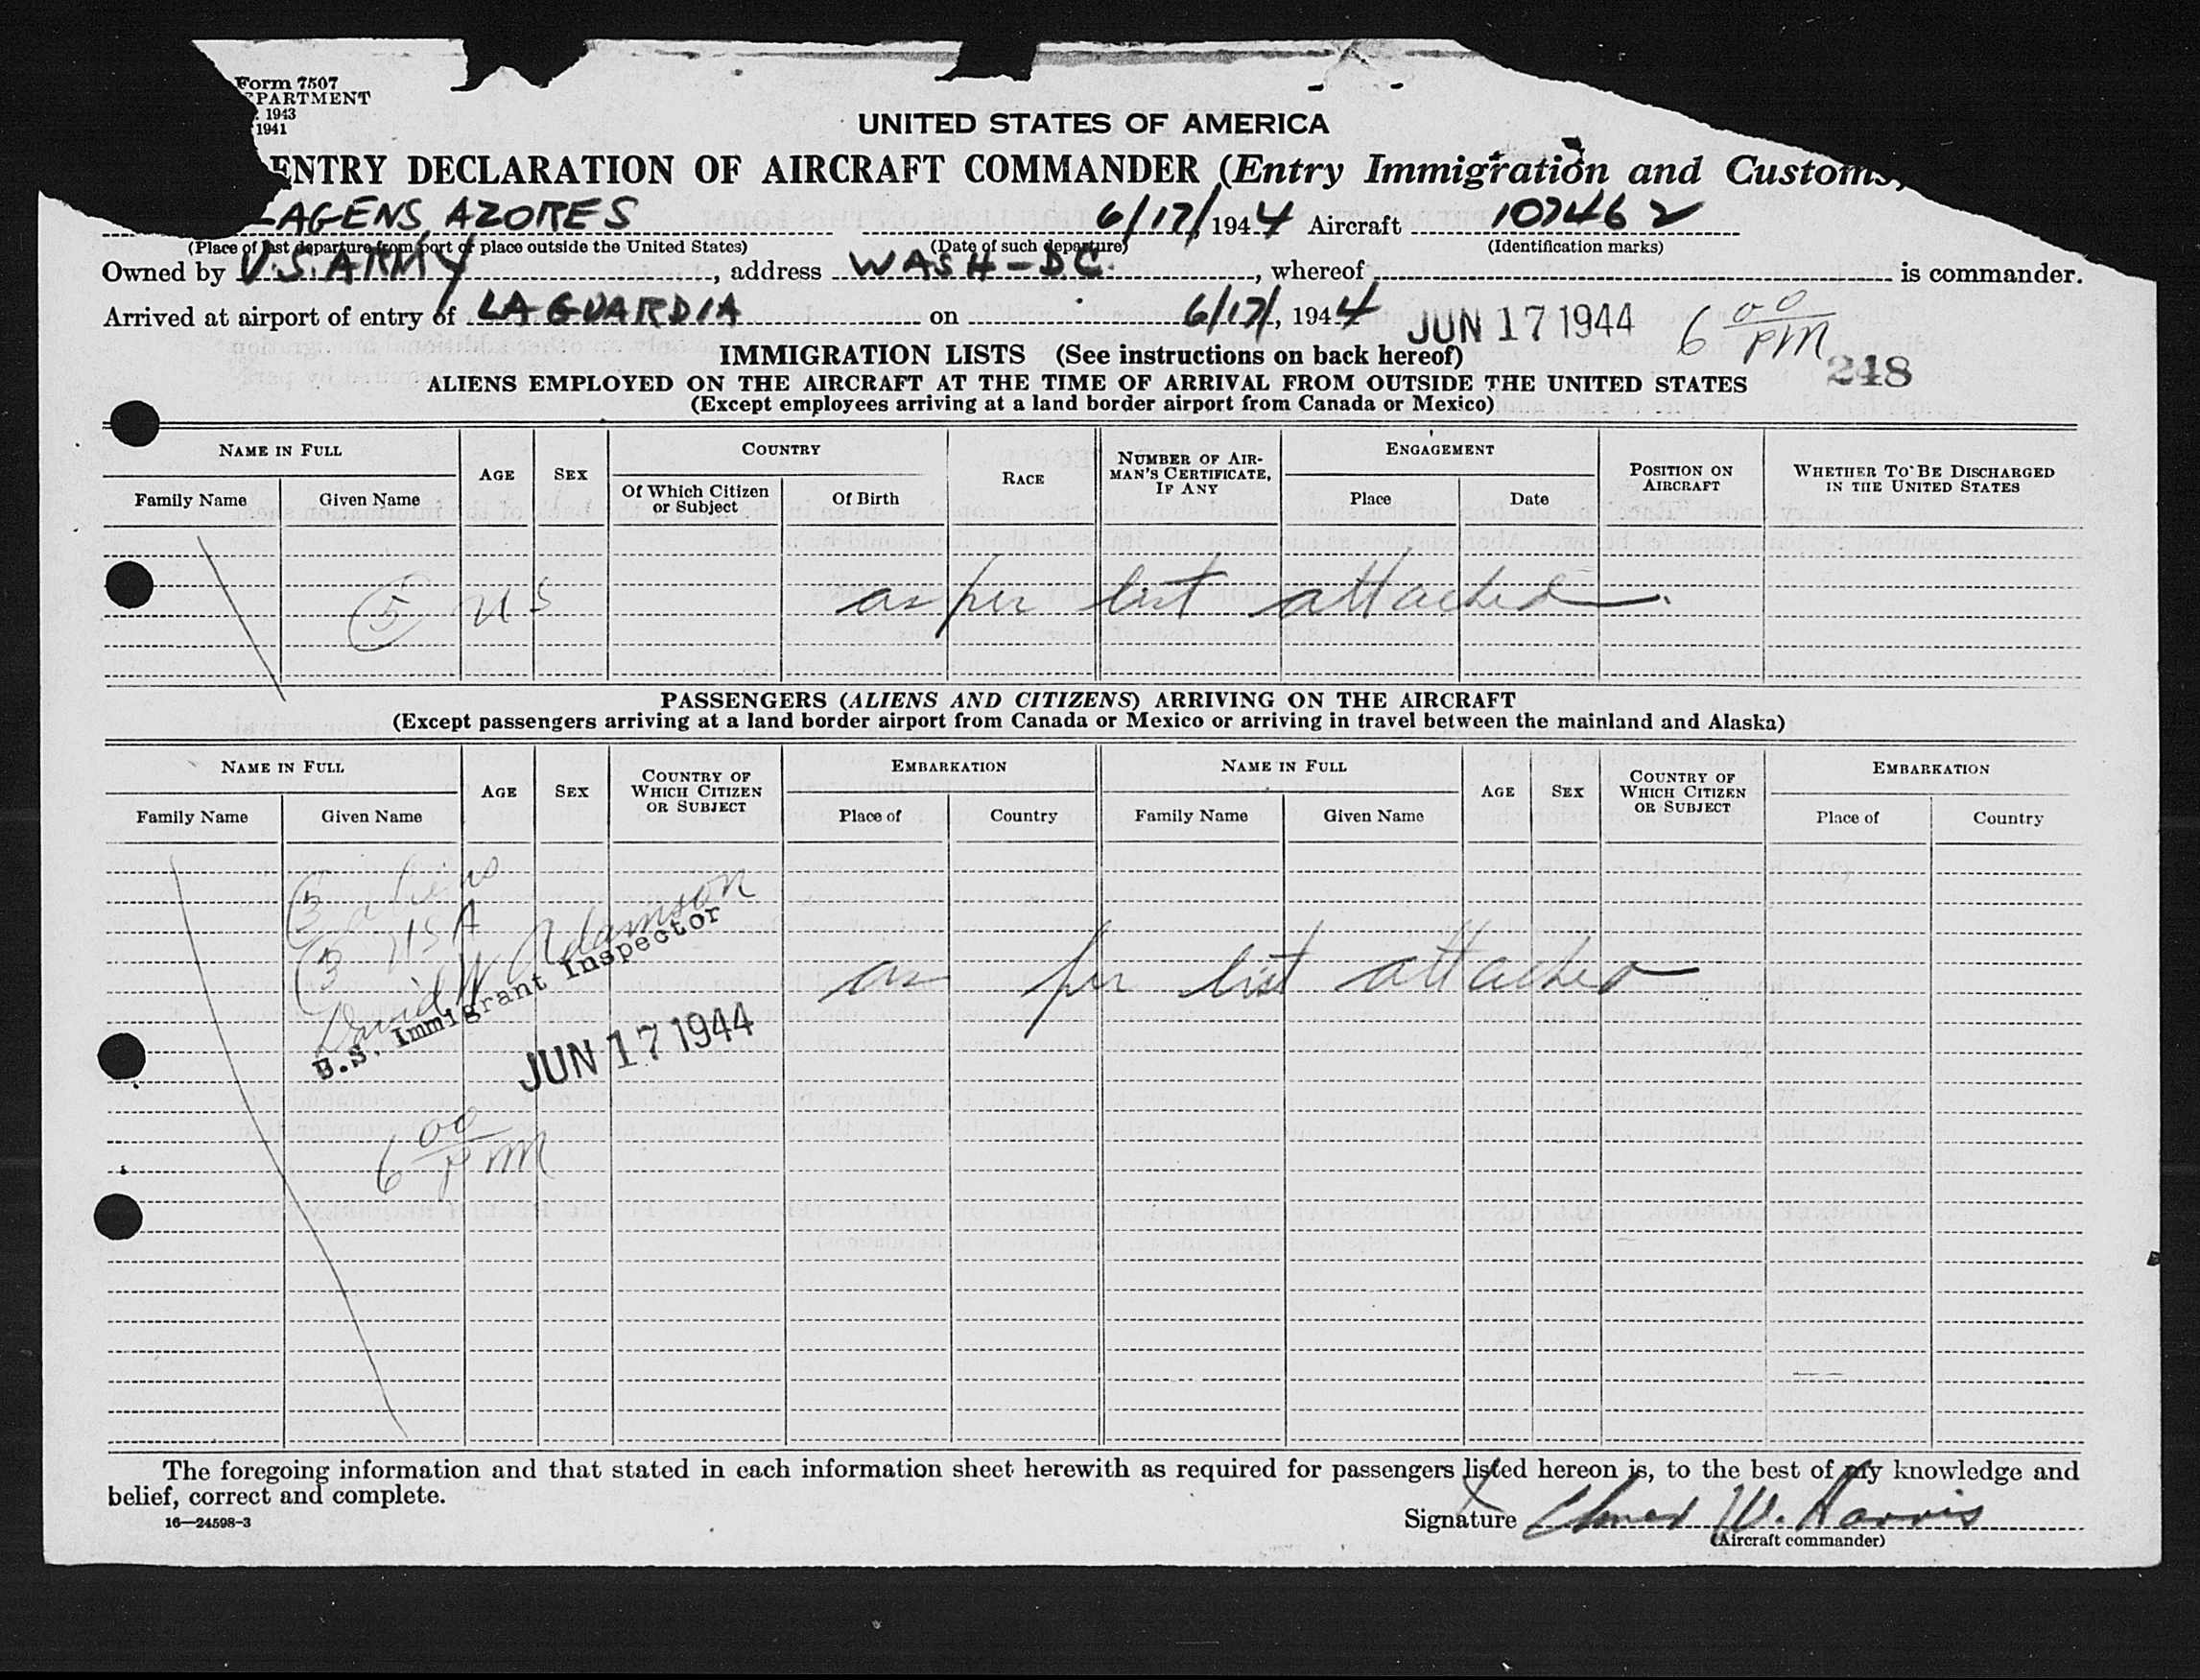 Form 7507
PARTMENT
1943
1941
UNITED STATES OF AMERICA
ENTRY DECLARATION OF AIRCRAFT COMMANDER (Entry Immigration and Customs)
LAGENS, AZORES 6/17/, 1944 Aircraft 107462
(Place of last departure from port or place outside the United States) (Date of such departure) (Identification marks)
Owned by U.S. ARMY, address WASH-DC., whereof is commander.
Arrived at airport of entry of LA GUARDIA on 6/17/, 1944 JUN 17 1944 6 00 PM
IMMIGRATION LISTS (See instructions on back hereof)
248
ALIENS EMPLOYED ON THE AIRCRAFT AT THE TIME OF ARRIVAL FROM OUTSIDE THE UNITED STATES
(Except employees arriving at a land border airport from Canada or Mexico)
NAME IN FULL
Family Name
Given Name
AGE
SEX
COUNTRY
Of Which Citizen
or Subject
Of Birth
RACE
NUMBER OF AIR-
MAN'S CERTIFICATE,
IF ANY
ENGAGEMENT
Place
Date
POSITION ON
AIRCRAFT
WHETHER TO BE DISCHARGED
IN THE UNITED STATES
5 US as per list attached.
PASSENGERS (ALIENS AND CITIZENS) ARRIVING ON THE AIRCRAFT
(Except passengers arriving at a land border airport from Canada or Mexico or arriving in travel between the mainland and Alaska)
NAME IN FULL
Family Name
Given Name
AGE
SEX
COUNTRY OF
WHICH CITIZEN
OR SUBJECT
EMBARKATION
Place of
Country
NAME IN FULL
Family Name
Given Name
AGE
SEX
COUNTRY OF
WHICH CITIZEN
OR SUBJECT
EMBARKATION
Place of
Country
(3 aliens
(3 USA
David W Adamson
U.S. Immigrant Inspector
as per list attached
JUN 17 1944
6 00 PM
The foregoing information and that stated in each information sheet herewith as required for passengers listed hereon is, to the best of my knowledge and
belief, correct and complete.
16—24598-3
Signature Elmer W. Harris
(Aircraft commander)